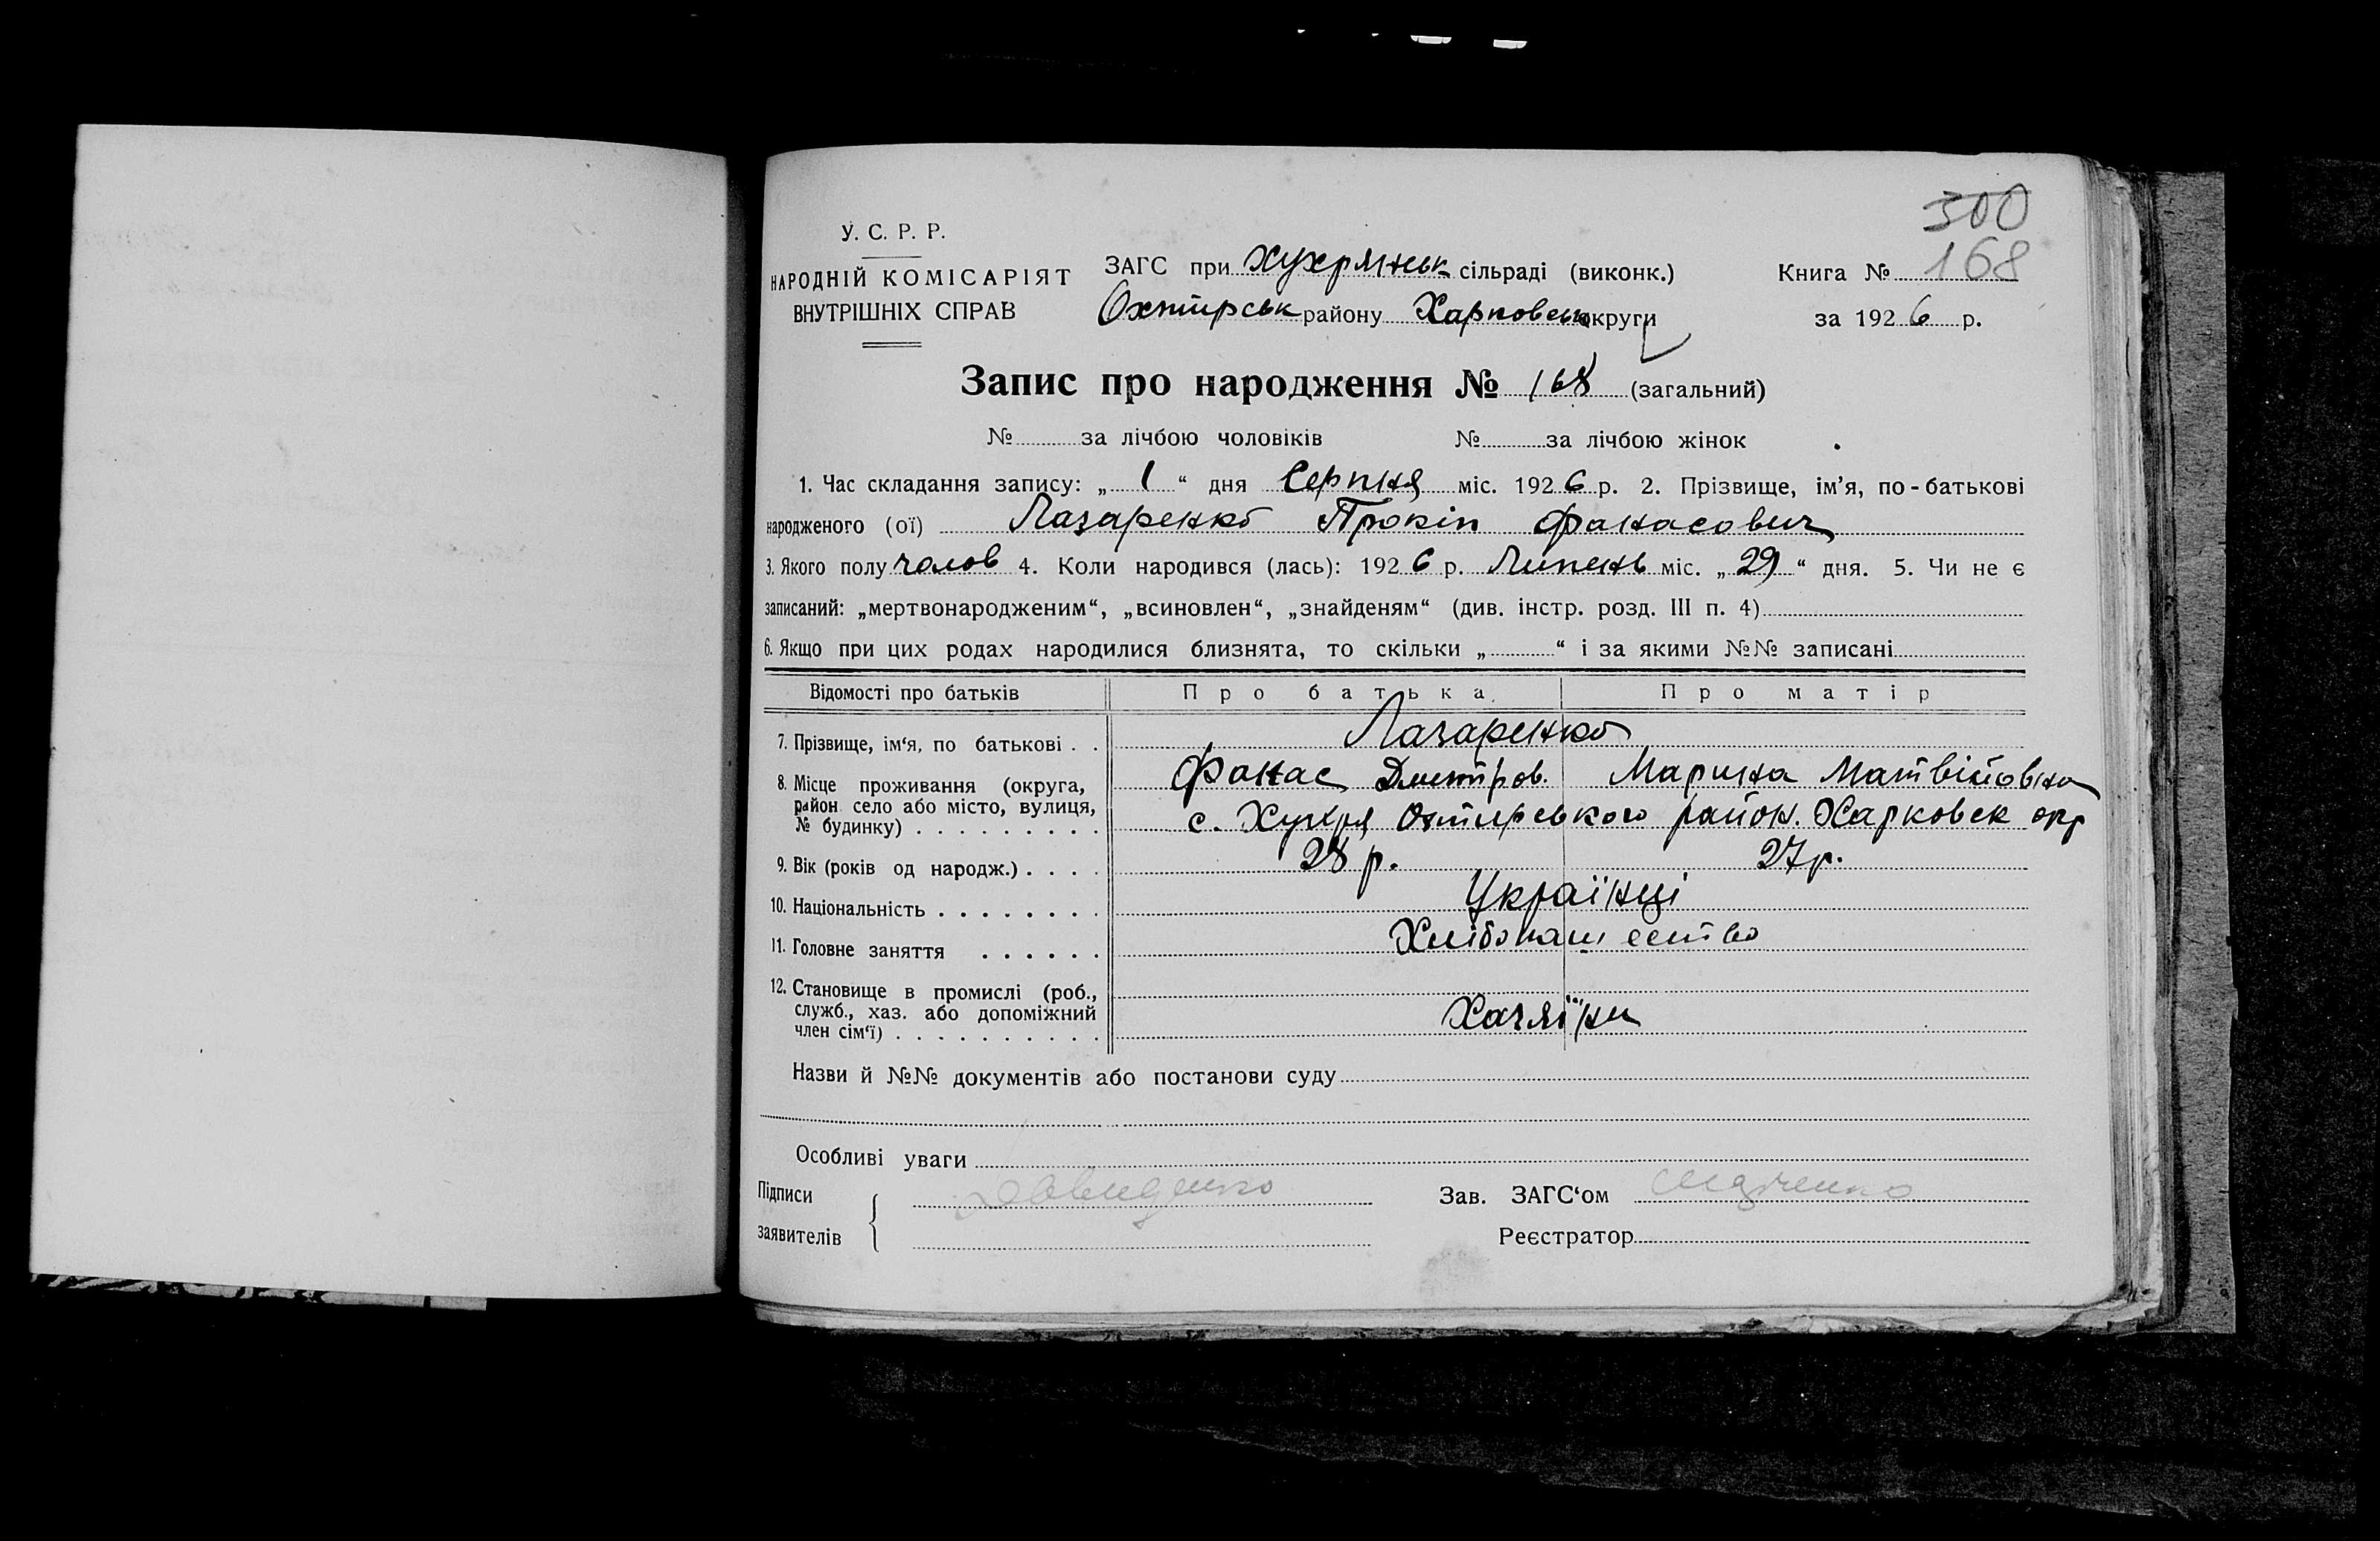 300
У. С. Р. Р.
НАРОДНІЙ КОМІСАРІЯТ
ВНУТРІШНІХ СПРАВ
ЗАГС при Хухрянськ сільраді (виконк.)
Охтирськ району Харковськ округи
Книга № 168
за 1926 р.
Запис про народження № 168 (загальний)
№ за лічбою чоловіків № за лічбою жінок
1. Час складання запису: „ 1 “ дня Серпня міс. 1926 р. 2. Прізвище, ім’я, по-батькові
народженого (ої) Лазаренко Прокіп Фанасович
3. Якого полу чолов 4. Коли народився (лась): 1926 р. Липень міс. „ 29 “ дня. 5. Чи не є
записаний: „мертвонародженим“, „всиновлен“, „знайденям“ (див. інстр. розд. III п. 4)
6. Якщо при цих родах народилися близнята, то скільки „ “ і за якими №№ записані
Відомості про батьків Про батька Про матір
7. Прізвище, ім‘я, по батькові . . Лазаренко
Фанас Дмитров. Марина Матвійовна
8. Місце проживання (округа,
район село або місто, вулиця,
№ будинку) . . . . . . . . . с. Хухря Охтирського район. Харковск окр
9. Вік (років од народж.) . . . . 28 р. 27 р.
10. Національність . . . . . . . . Українці
11. Головне заняття . . . . . . Хлібопашество
12. Становище в промислі (роб.,
служб., хаз. або допоміжний
член сім‘ї) . . . . . . . . . . Хазяїни
Назви й №№ документів або постанови суду
Особливі уваги
Підписи
заявителів
Зав. ЗАГС‘ом
Реєстратор